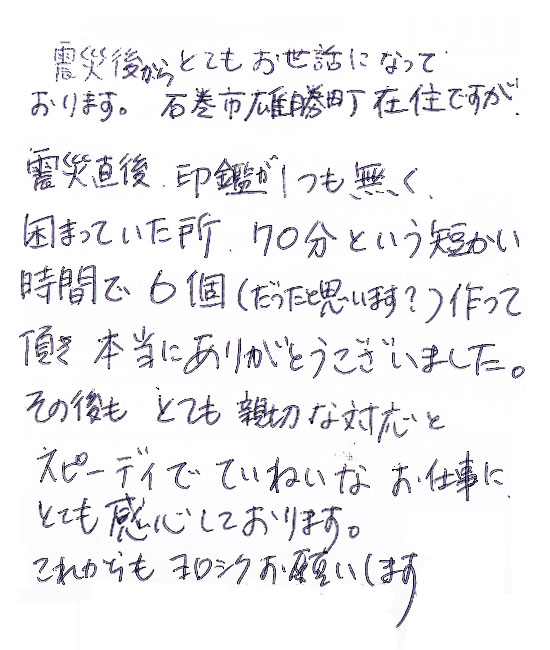 震災後からとてもお世話になって
おります。 石巻市雄勝町在住ですが、
震災直後、印鑑が1つも無く、
困まっていた所、70分という短かい
時間で6個(だったと思います?)作って
頂き 本当にありがとうございました。
その後も とても 親切な対応と
スピーディで ていねいな お仕事に、
とても感心しております。
これからも ヨロシクお願いします